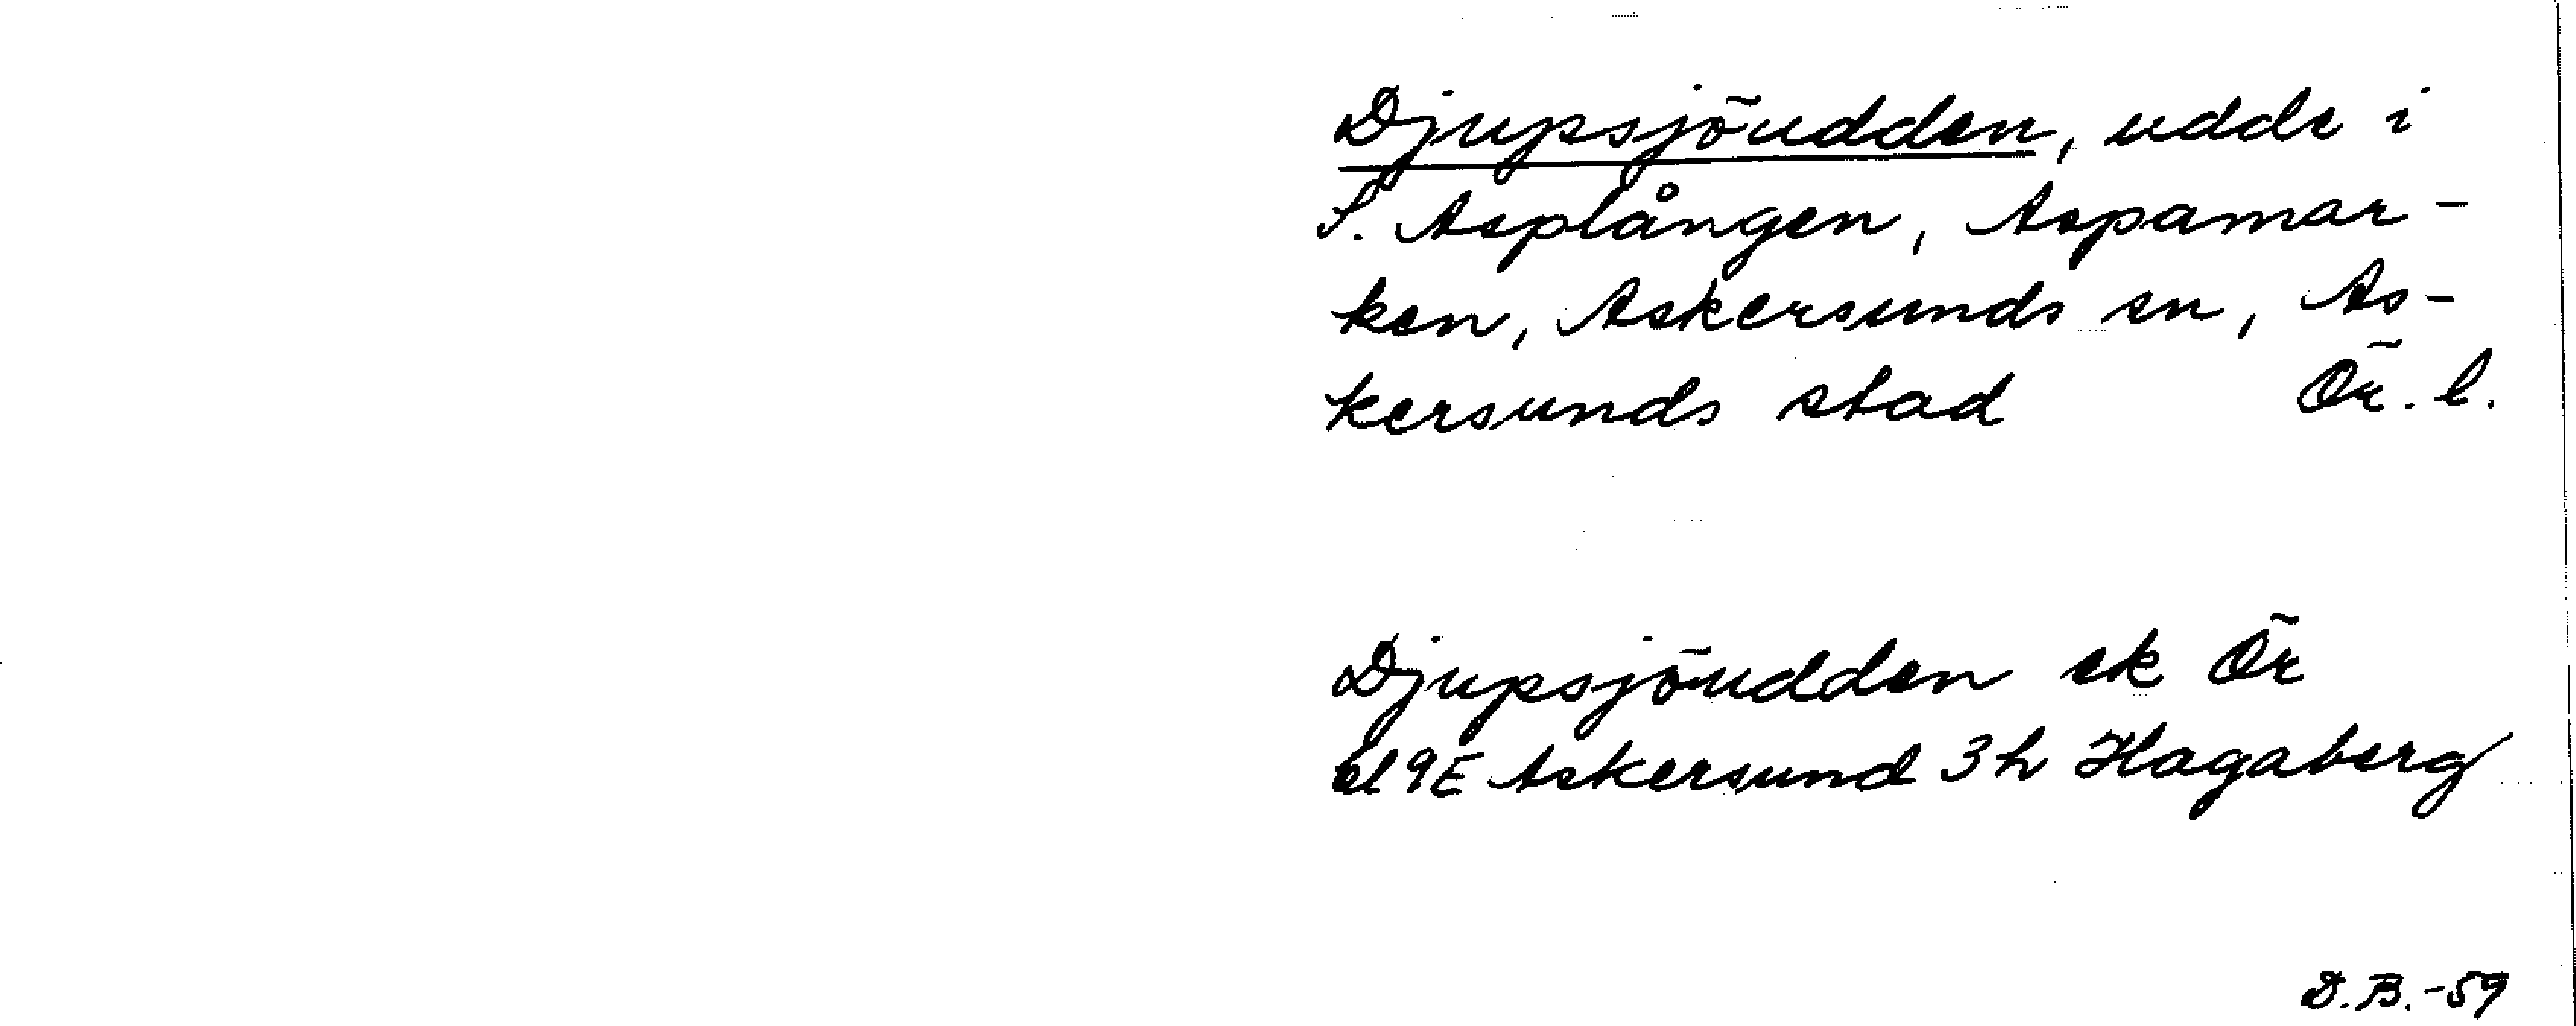 Djupsjöudden, udde i
S. Asplången, Aspamar-
ken, Askersunds sn, As-
kersunds stad Ör. l.
Djupsjöudden ek Ör
bl 9E Askersund 3h Hagaberg
D.B.-59